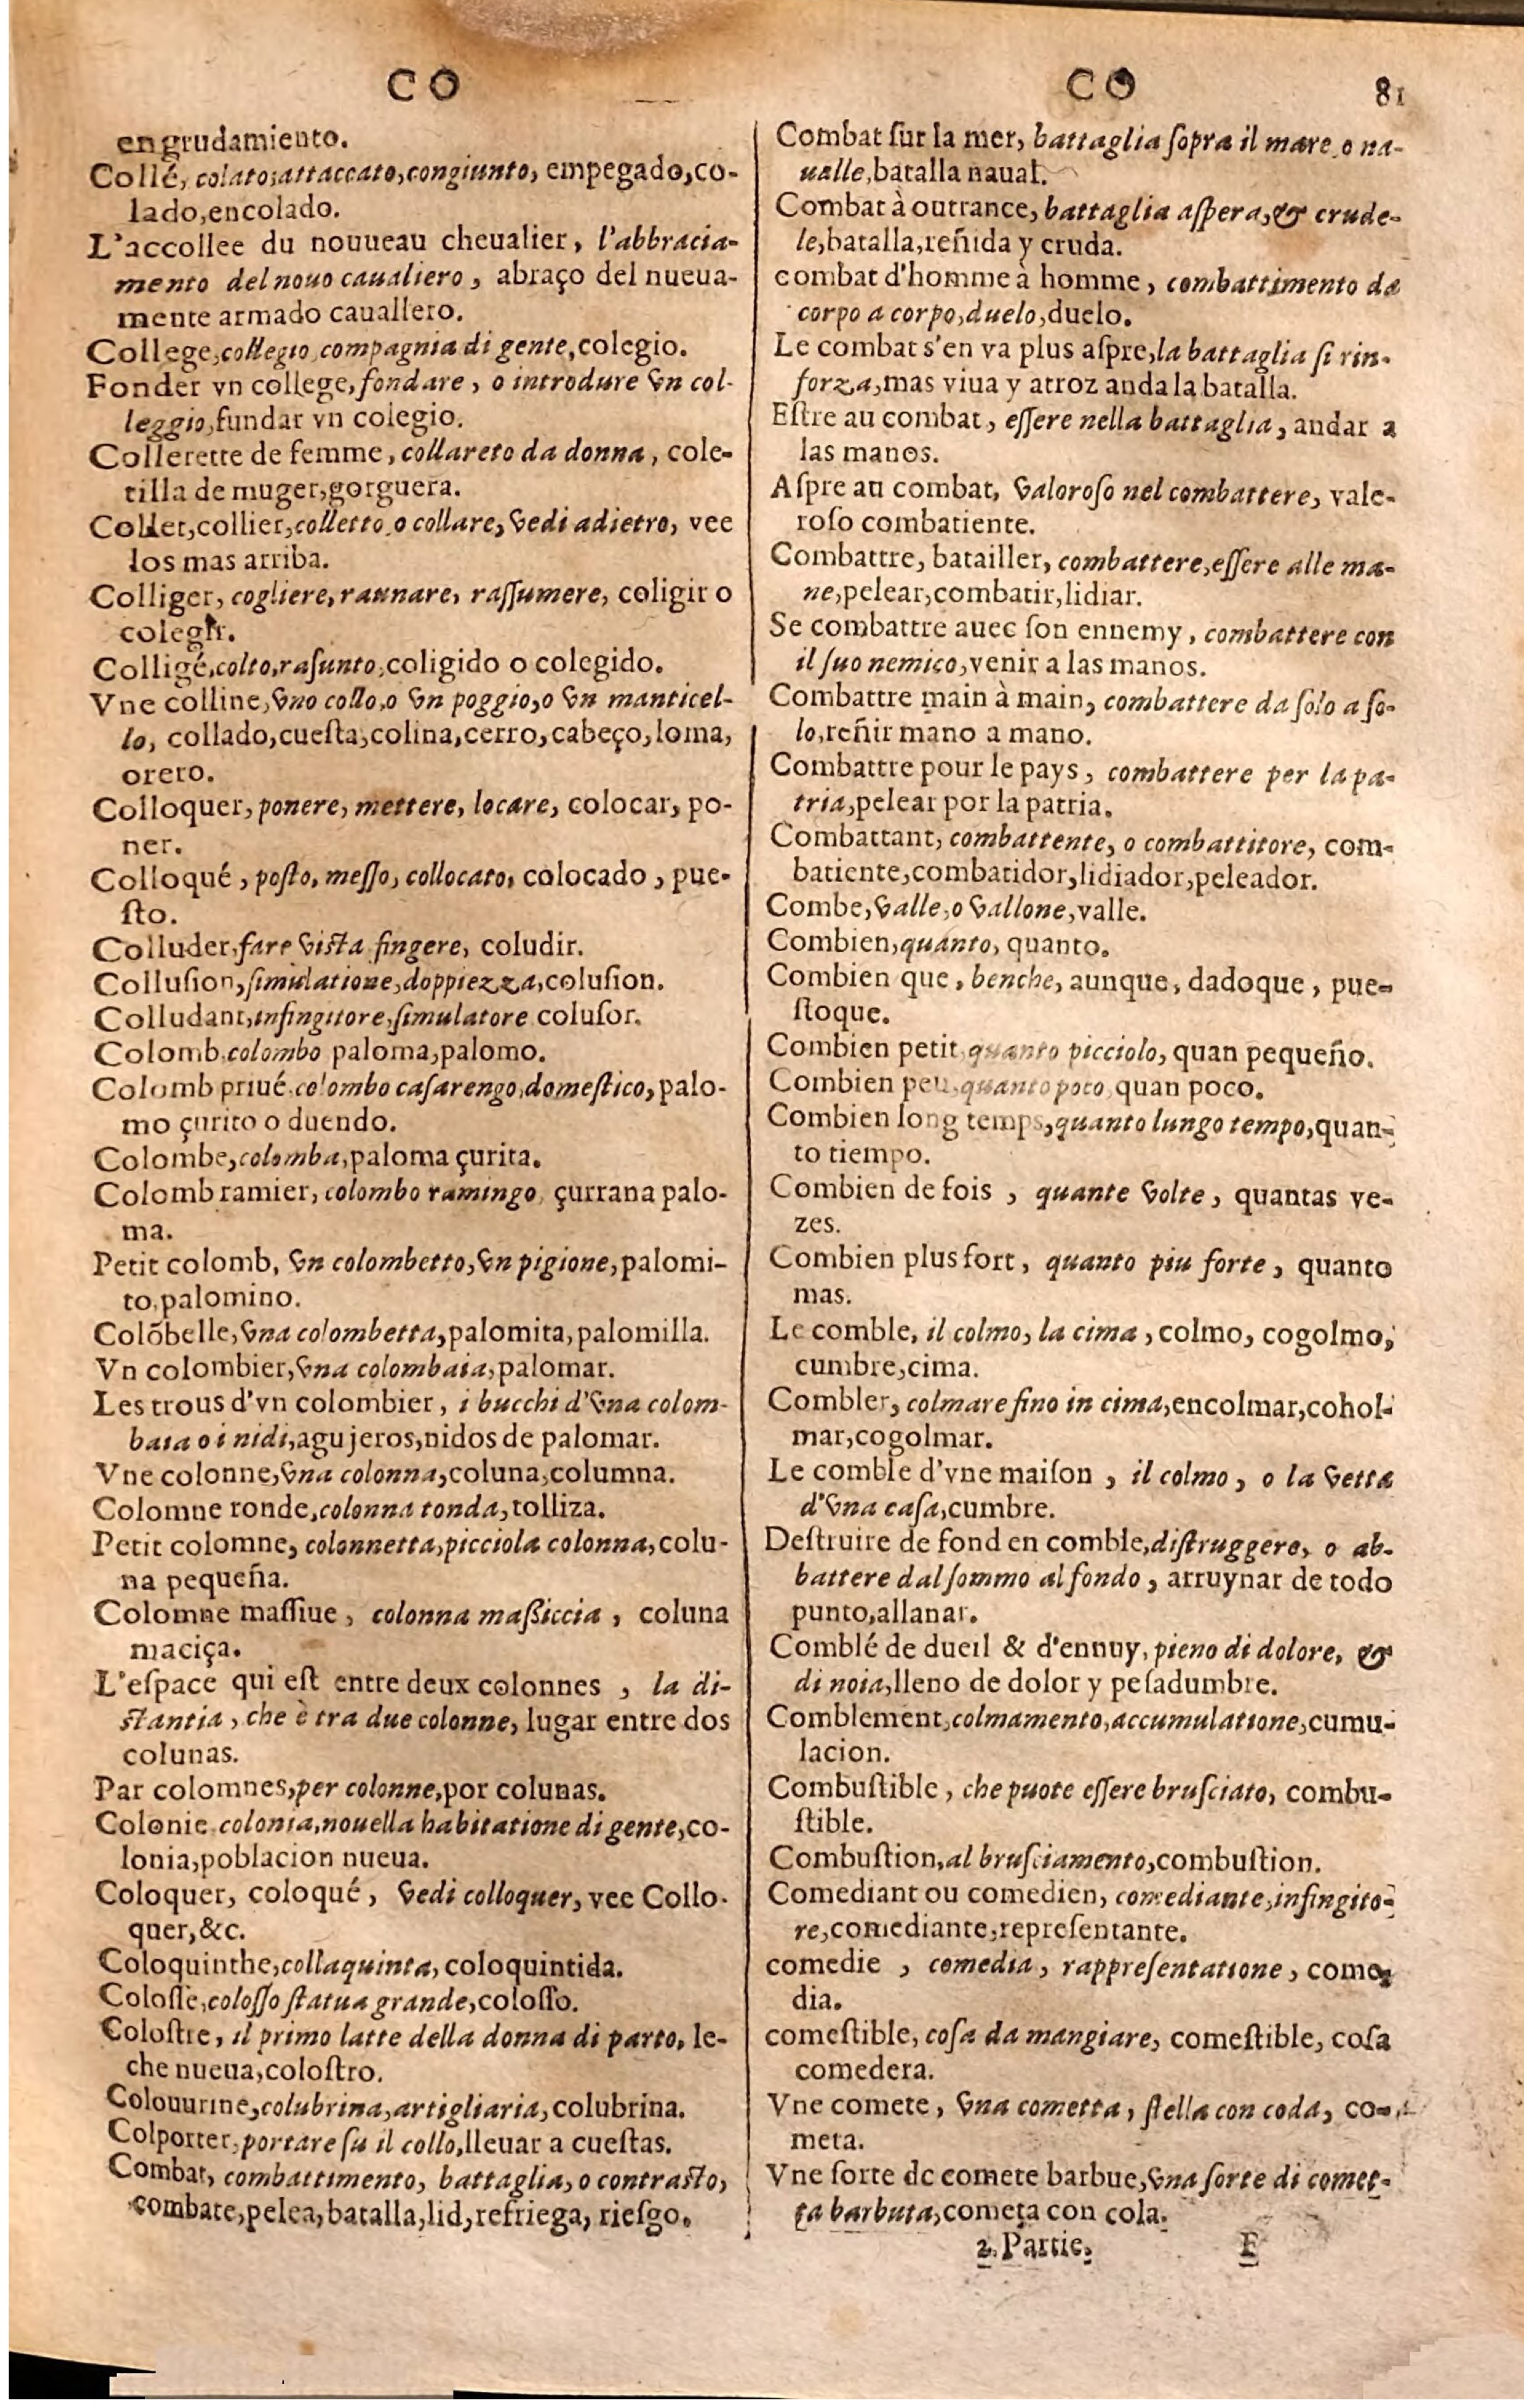 CO
engrudamiento.
Collé, colato, attaccato, congiunto, empegado, co-
lado, encolado.
L'accollee du nouueau cheualier, l'abbracia-
mento del nouo caualiero, abraço del nueua-
mente armado cauallero.
College, collegio, compagnia di gente, colegio.
Fonder vn college, fondare, o introdure vn col-
leggio, fundar vn colegio.
Collerette de femme, collareto da donna, cole-
tilla de muger, gorguera.
Collet, collier, colletto, o collare, vedi adietro, vee
los mas arriba.
Colliger, cogliere, raunare, raſſumere, coligir o
colegir.
Colligé, colto, raſunto, coligido o colegido.
Vne colline, vno collo, o vn poggio, o vn manticel-
lo, collado, cueſta, colina, cerro, cabeço, loma,
orero.
Colloquer, ponere, mettere, locare, colocar, po-
ner.
Colloqué, poſto, meſſo, collocato, colocado, pue-
ſto.
Colluder, fare viſta fingere, coludir.
Colluſion, ſimulatione, doppiezza, coluſion.
Colludant, infingitore, ſimulatore coluſor.
Colomb, colombo paloma, palomo.
Colomb priué, colombo caſarengo, domeſtico, palo-
mo çurito o duendo.
Colombe, colomba, paloma çurita.
Colomb ramier, colombo ramingo, çurrana palo-
ma.
Petit colomb, vn colombetto, vn pigione, palomi-
to, palomino.
Colõbelle, vna colombetta, palomita, palomilla.
Vn colombier, vna colombaia, palomar.
Les trous d'vn colombier, i bucchi d'vna colom-
baia o i nidi, agujeros, nidos de palomar.
Vne colonne, vna colonna, coluna, columna.
Colomne ronde, colonna tonda, tolliza.
Petit colomne, colonnetta, picciola colonna, colu-
na pequeña.
Colomne maſſiue, colonna maßiccia, coluna
maciça.
L'eſpace qui eſt entre deux colonnes, la di-
ſtantia, che è tra due colonne, lugar entre dos
colunas.
Par colomnes, per colonne, por colunas.
Colonie, colonia, nouella habitatione di gente, co-
lonia, poblacion nueua.
Coloquer, coloqué, vedi colloquer, vee Collo-
quer, &c.
Coloquinthe, collaquinta, coloquintida.
Coloſſe, coloſſo ſtatua grande, coloſſo.
Coloſtre, il primo latte della donna di parto, le-
che nueua, coloſtro.
Colouurine, colubrina, artigliaria, colubrina.
Colporter, portare ſu il collo, lleuar a cueſtas.
Combat, combattimento, battaglia, o contraſto,
combate, pelea, batalla, lid, refriega, rieſgo.
CO 81
Combat ſur la mer, battaglia ſopra il mare, o na-
ualle, batalla naual.
Combat à outrance, battaglia aſpera, & crude-
le, batalla, reñida y cruda.
combat d'homme à homme, combattimento da
corpo a corpo, duelo, duelo.
Le combat s'en va plus aſpre, la battaglia ſi rin-
forza, mas viua y atroz anda la batalla.
Eſtre au combat, eſſere nella battaglia, andar a
las manos.
Aſpre au combat, valoroſo nel combattere, vale-
roſo combatiente.
Combattre, batailler, combattere, eſſere alle ma-
ne, pelear, combatir, lidiar.
Se combattre auec ſon ennemy, combattere con
il ſuo nemico, venir a las manos.
Combattre main à main, combattere da ſolo a ſo-
lo, reñir mano a mano.
Combattre pour le pays, combattere per la pa-
tria, pelear por la patria.
Combattant, combattente, o combattitore, com-
batiente, combatidor, lidiador, peleador.
Combe, valle, o vallone, valle.
Combien, quanto, quanto.
Combien que, benche, aunque, dadoque, pue-
ſtoque.
Combien petit, quanto picciolo, quan pequeño.
Combien peu, quanto poco, quan poco.
Combien long temps, quanto lungo tempo, quan-
to tiempo.
Combien de fois, quante volte, quantas ve-
zes.
Combien plus fort, quanto piu forte, quanto
mas.
Le comble, il colmo, la cima, colmo, cogolmo,
cumbre, cima.
Combler, colmare fino in cima, encolmar, cohol-
mar, cogolmar.
Le comble d'vne maiſon, il colmo, o la vetta
d'vna caſa, cumbre.
Deſtruire de fond en comble, diſtruggere, o ab-
battere dal ſommo al fondo, arruynar de todo
punto, allanar.
Comblé de dueil & d'ennuy, pieno di dolore, &
di noia, lleno de dolor y peſadumbre.
Comblement, colmamento, accumulatione, cumu-
lacion.
Combuſtible, che puote eſſere bruſciato, combu-
ſtible.
Combuſtion, al bruſciamento, combuſtion.
Comediant ou comedien, comediante, infingito-
re, comediante, repreſentante.
comedie, comedia, rappreſentatione, come-
dia.
comeſtible, coſa da mangiare, comeſtible, coſa
comedera.
Vne comete, vna cometta, ſtella con coda, co-
meta.
Vne ſorte de comete barbue, vna ſorte di comet-
ta barbuta, cometa con cola.
2. Partie. F